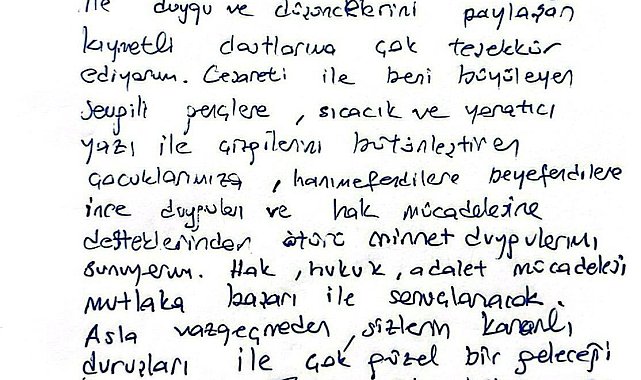 ile duygu ve düşüncelerini paylaşan
kıymetli dostlarıma çok teşekkür
ediyorum. Cesareti ile beni büyüleyen
sevgili gençlere, sıcacık ve yaratıcı
yazı ile çizgilerini bütünleştiren
çocuklarımıza, hanımefendilere beyefendilere
ince duyguları ve hak mücadelesine
desteklerinden ötürü minnet duygularımı
sunuyorum. Hak, hukuk, adalet mücadelesi
mutlaka başarı ile sonuçlanacak.
Asla vazgeçmeden, sizlerin kararlı
duruşları ile çok güzel bir geleceği